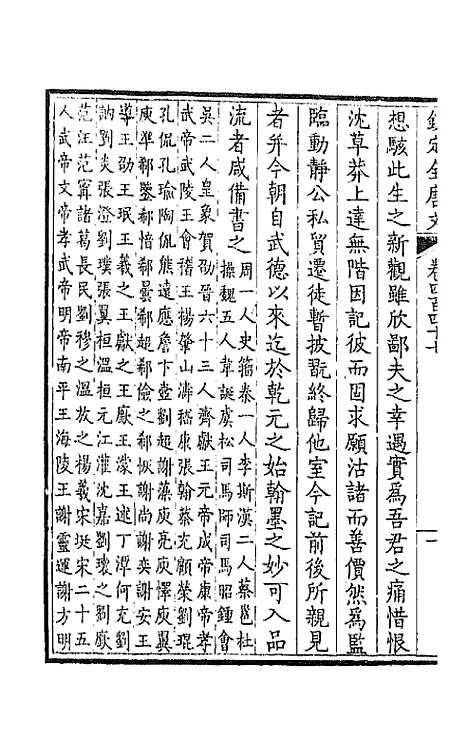 欽定全唐文 卷四百四十七 一
想駭此生之新觀雖欣鄙夫之幸遇實為吾君之痛惜恨
沈草莽上達無階因記彼而因求願沽諸而善價然為監
臨動靜公私貿遷徙暫披翫終歸他室今記前後所親見
者并今朝自武德以來迄於乾元之始翰墨之妙可入品
流者咸備書之周一人史籀秦一人李斯漢二人蔡邕杜
操魏五人韋誕虞松司馬師司馬昭鍾會
吳二人皇象賀劭晉六十三人齊獻王元帝成帝康帝孝
武帝武陵王會稽王楊肇山濤嵇康張翰蔡克顧榮劉琨
孔侃孔瑜陶侃熊遠應詹卞壼劉超謝藻庾亮庾懌庾翼
庾準郗鑒郗愔郗曇郗超郗儉之郗恢謝尚謝奕謝安王
導王劭王珉王羲之王獻之王廞王濛王述丁潭何充劉
訥劉惔張澄劉璞張翼桓溫桓元江灌沈嘉劉瓌之劉廞
范汪范甯諸葛長民劉穆之溫放之楊羲宋珽宋二十五
人武帝文帝孝武帝明帝南平王海陵王謝靈運謝方明